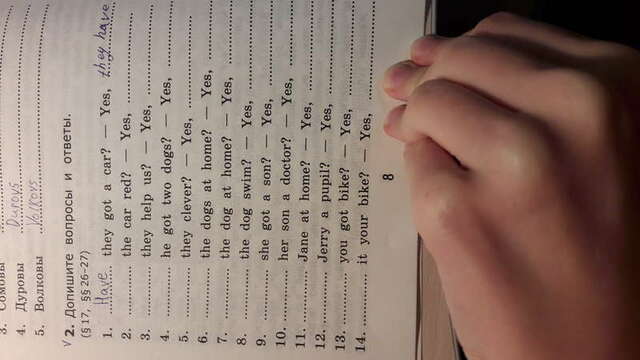 3. Сомовы
4. Дуровы Durovs
5. Волковы Volkovs
√ 2. Допишите вопросы и ответы.
(§ 17, §§ 26–27)
1. Have they got a car? — Yes, they have
2. ............ the car red? — Yes, ............
3. ............ they help us? — Yes, ............
4. ............ he got two dogs? — Yes, ............
5. ............ they clever? — Yes, ............
6. ............ the dogs at home? — Yes, ............
7. ............ the dog at home? — Yes, ............
8. ............ the dog swim? — Yes, ............
9. ............ she got a son? — Yes, ............
10. ............ her son a doctor? — Yes, ............
11. ............ Jane at home? — Yes, ............
12. ............ Jerry a pupil? — Yes, ............
13. ............ you got bike? — Yes, ............
14. ............ it your bike? — Yes, ............
8